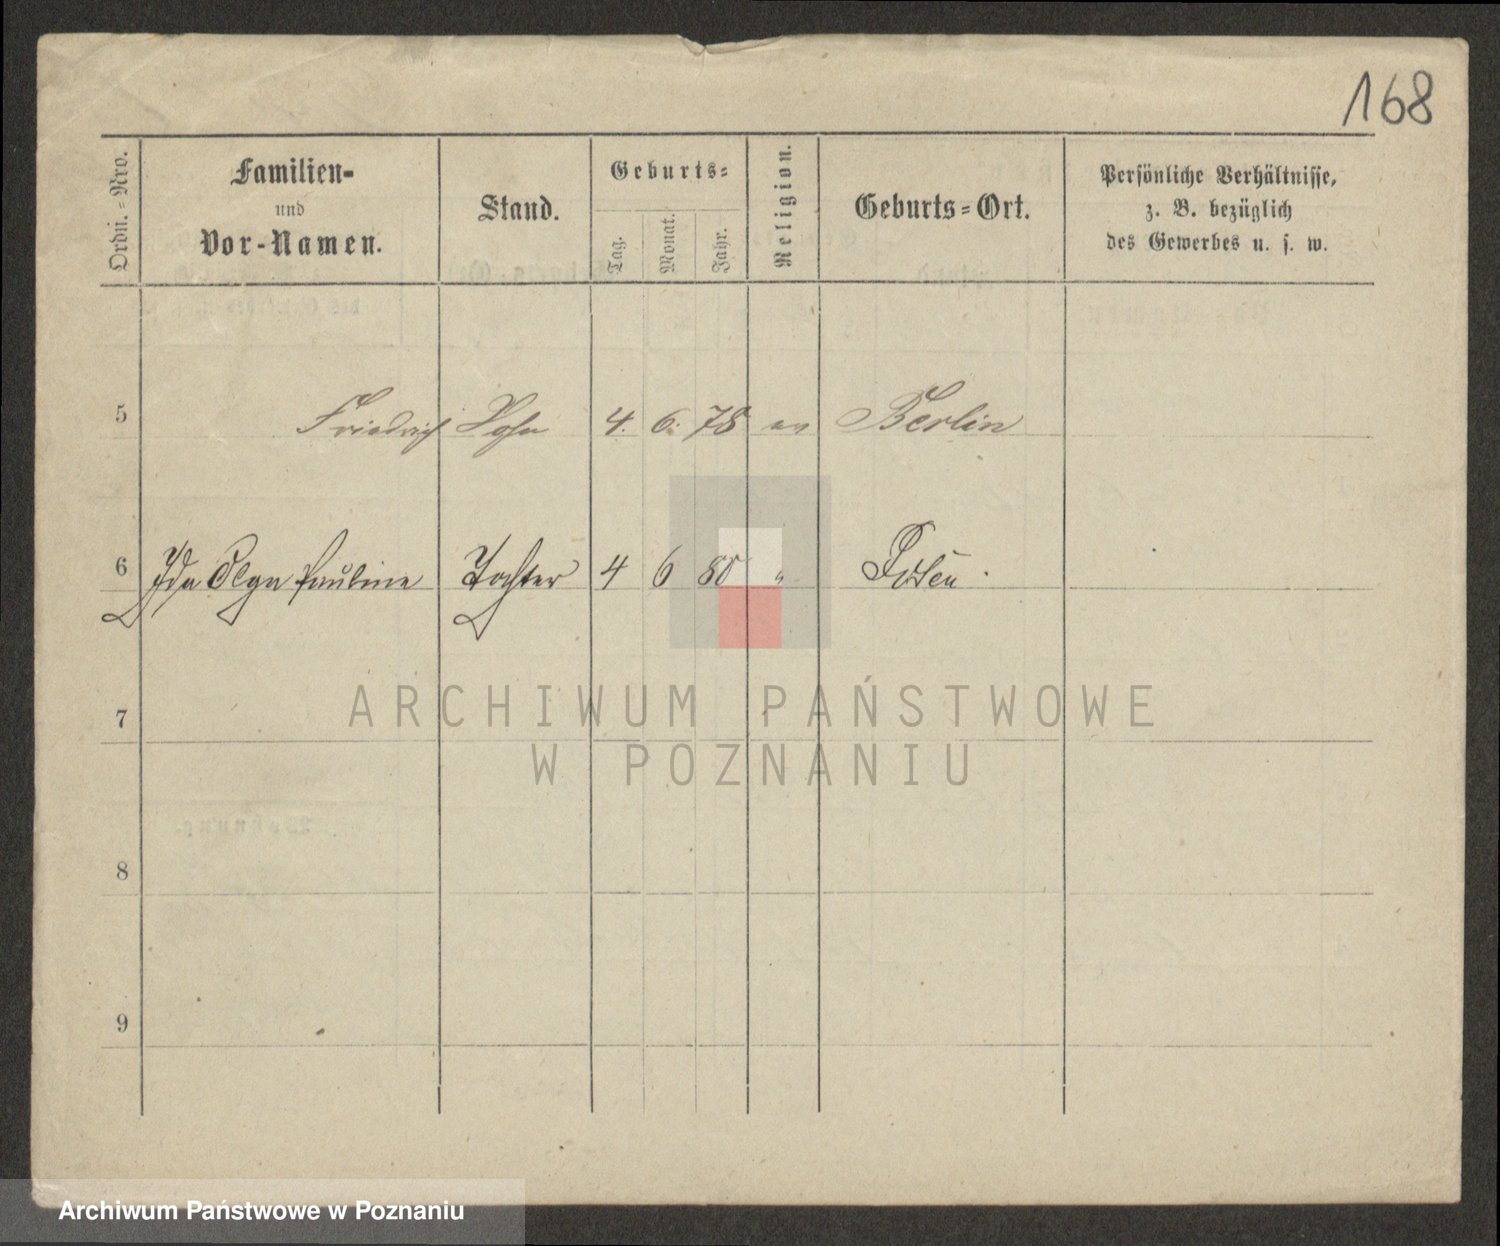 168
Ordn.=Nro.
Familien-
und
Vor-Namen.
Stand.
Geburts=
Tag.
Monat.
Jahr.
Religion.
Geburts=Ort.
Persönliche Verhältnisse,
z. B. bezüglich
des Gewerbes u. s. w.
5 Friedrich Sohn 4. 6. 78 ev Berlin
6 Ida Olga Pauline Tochter 4 6 80 " Posen.
7
ARCHIWUM PAŃSTWOWE
W POZNANIU
8
9
Archiwum Państwowe w Poznaniu